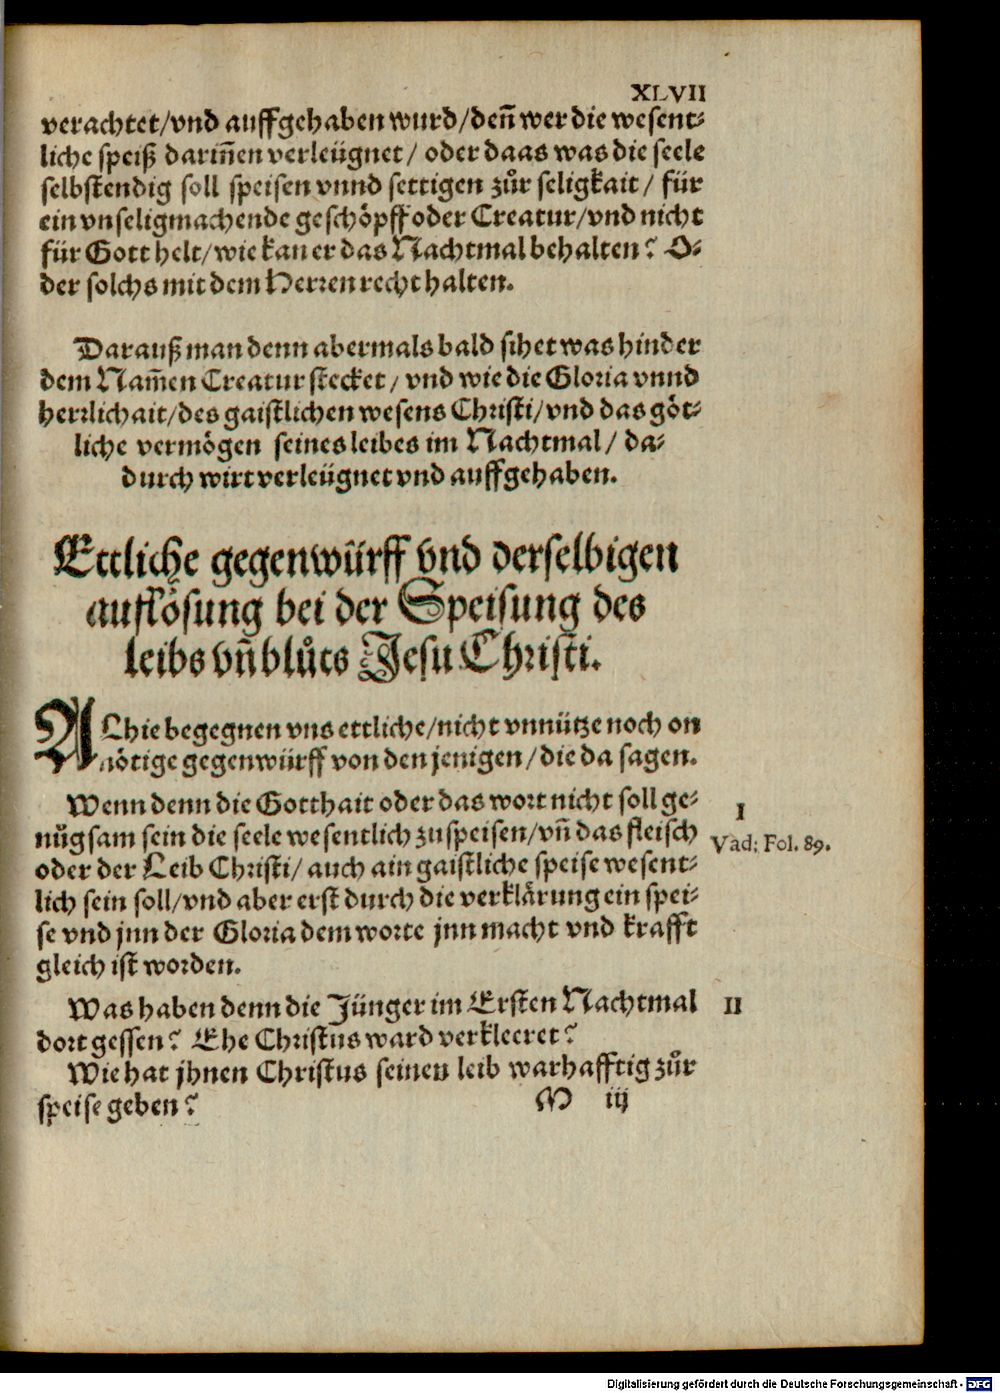 XLVII
verachtet/vnd auffgehaben wurd/deñ wer die wesent⸗
liche speiß dariñen verleügnet/ oder daas was die seele
selbstendig soll speisen vnnd settigen zůr seligkait/ für
ein vnseligmachende geschöpff oder Creatur/vnd nicht
für Gott helt/wie kan er das Nachtmal behalten? O⸗
der solchs mit dem Herren recht halten.
Darauß man denn abermals bald sihet was hinder
dem Nam̃en Creatur stecket/ vnd wie die Gloria vnnd
herrlichait/des gaistlichen wesens Christi/vnd das göt⸗
liche vermögen seines leibes im Nachtmal/ da⸗
durch wirt verleügnet vnd auffgehaben.
Ettliche gegenwürff vnd derselbigen
auflösung bei der Speisung des
leibs vñ blůts Jesu Christi.
ALhie begegnen vns ettliche/nicht vnnütze noch on
nötige gegenwürff von den jenigen/die da sagen.
Wenn denn die Gotthait oder das wort nicht soll ge⸗
nůgsam sein die seele wesentlich zuspeisen/vñ das fleisch
I
Vad: Fol. 89.
oder der Leib Christi/ auch ain gaistliche speise wesent⸗
lich sein soll/vnd aber erst durch die verklärung ein spei⸗
se vnd jnn der Gloria dem worte jnn macht vnd krafft
gleich ist worden.
Was haben denn die Jünger im Ersten Nachtmal
II
dort gessen? Ehe Christus ward verkleeret?
Wie hat jhnen Christus seinen leib warhafftig zůr
speise geben?
M iij
Digitalisierung gefördert durch die Deutsche Forschungsgemeinschaft - DFG